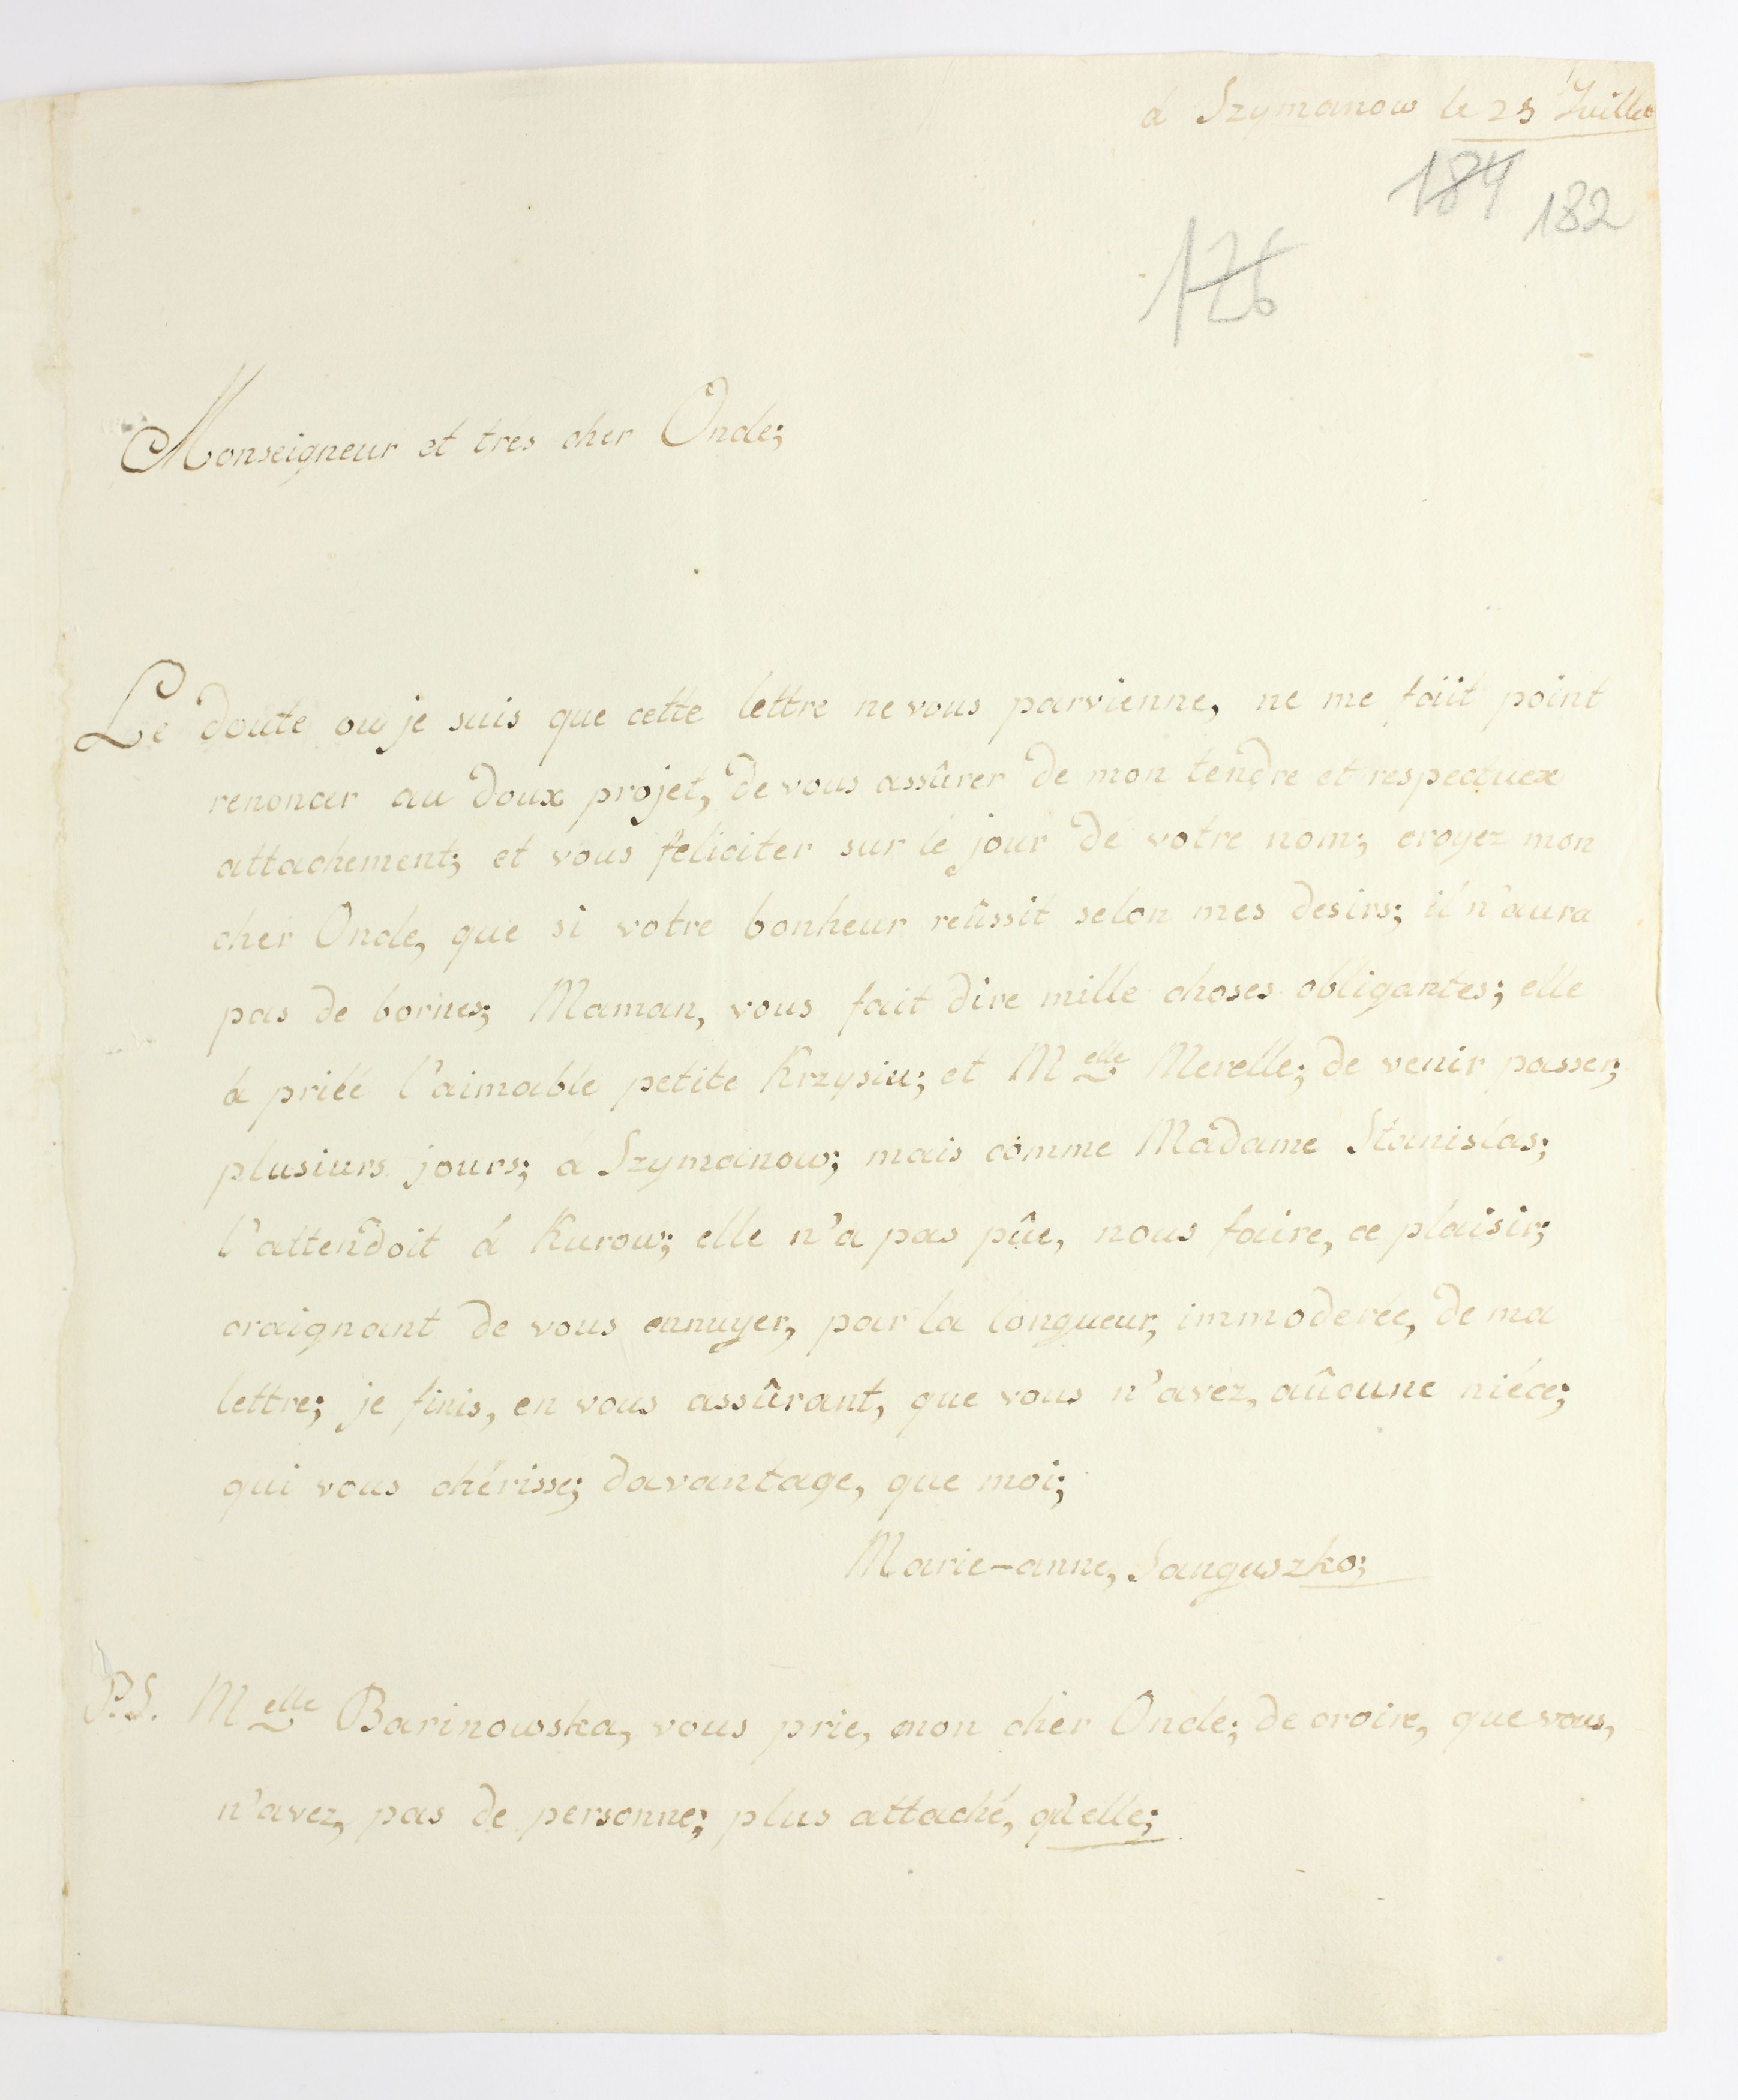 á Szymanow le 25 Juillet
184 182
126
Monseigneur et trés cher Oncle;
Le doute ou je suis que cette lettre ne vous parvienne, ne me fait point
renoncer au doux projet, de vous assûrer de mon tendre et respectuex
attachement; et vous féliciter sur le jour de votre nom; croyez mon
cher Oncle, que si votre bonheur reûssit selon mes desirs; il n'aura
pas de bornes; Maman, vous fait dire mille choses obligantes; elle
à priéé l'aimable petite Krzysiu; et Melle Merelle; de venir passer;
plusiurs jours; á Szymanow; mais comme Madame Stanislas;
l'attendoit á Kurow; elle n'a pas pûe, nous faire, ce plaisir;
craignant de vous ennuyer, par la longueur, immoderée, de ma
lettre; je finis, en vous assûrant, que vous n'avez, aûcune niéce;
qui vous chérisse; davantage, que moi;
Marie-anne, Sanguszko;
P.S. Melle Barinowska, vous prie, mon cher Oncle; de croire, que vous,
n'avez, pas de personne; plus attaché, qu'elle;